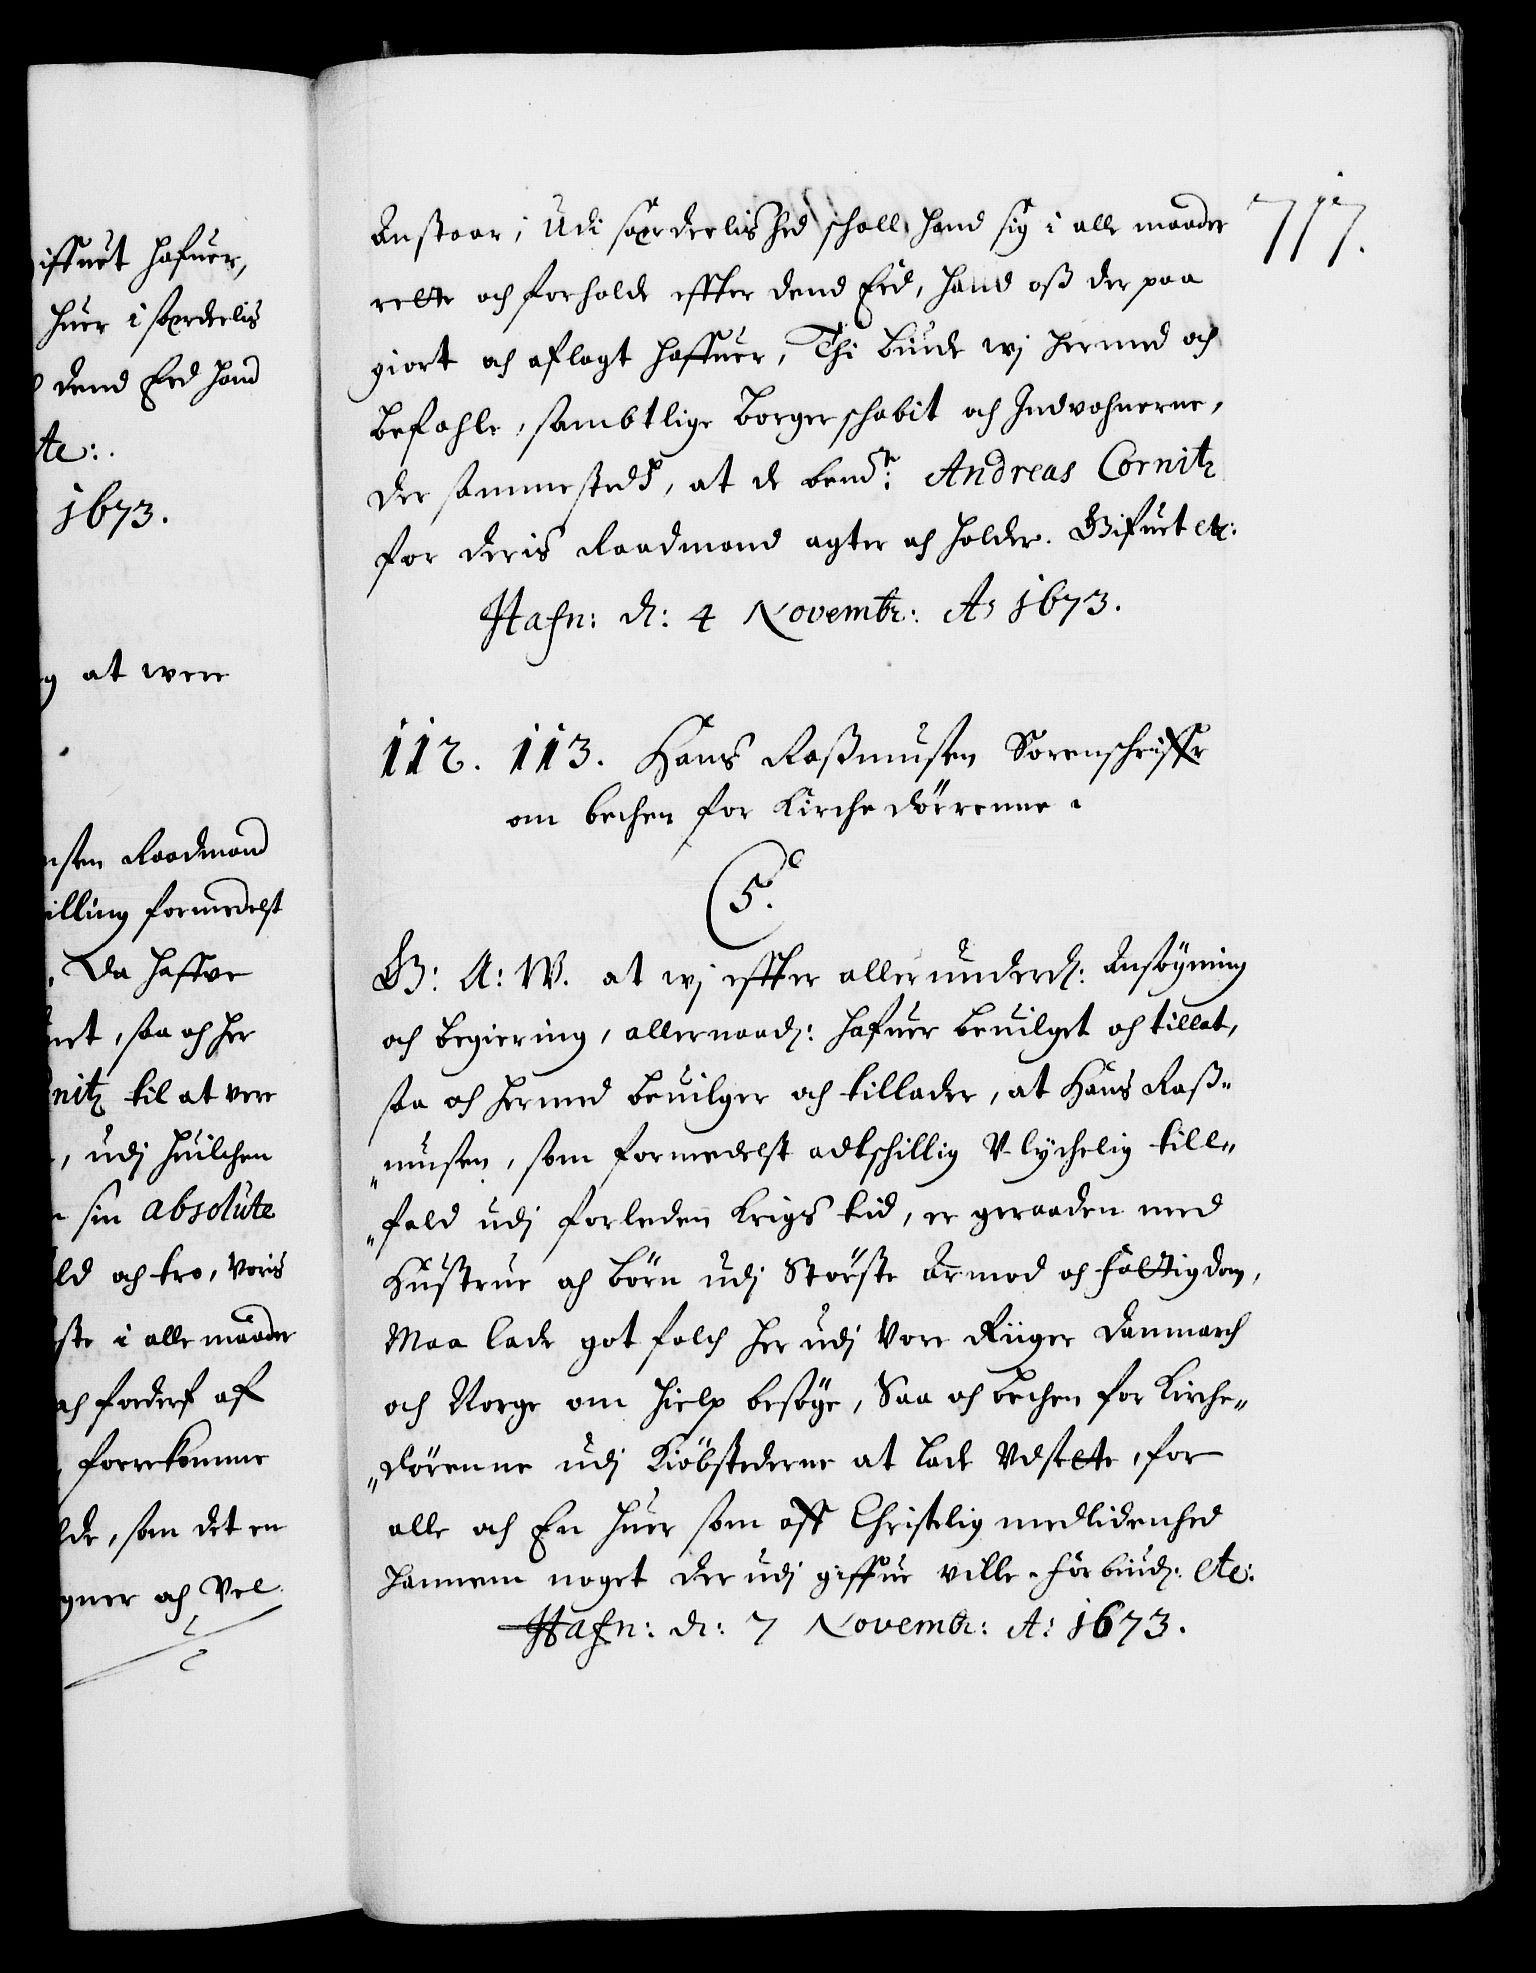 iffuet hafuer,
huer i særdeelis
dend Eed hand
etc:.
1673.
at were
nsten Raadmand
villing formedelst
, Da haffve
uet, saa och her
nitz til at vere
, udj huilchen
sin absolute
ld och tro, Voris
ste i alle maader
och forderf af
forrekomme
lde, som det en
gner och Vel
717.
Anstaar; Udi særdeelished schall hand sig i alle maader
rette och forholde effter dend Eed, hand oß der paa
giort och aflagt haffuer, Thi biude wj hermed och
befahle, sambtlige Borgerschabit och Indvohnerne,
der sammesteds, at de bemte: Andreas Cornitz
for deris Raadmand agter och holder. Gifuet etc:
Hafn: d: 4 Novembr: Ao 1673.
112. 113. Hans Raßmusen Sorenschriffr
om bechen for Kirchedörrenne.
5.
G: A: W. at wj effter allerunderd: Ansøgning
och begiering, allernaad: hafuer beuilget och tillat,
saa och hermed beuilger och tillader, at Hans Raß-
musen, som formedelst adtschillig V-lychelig till-
fald udj forleden krigs tid, er geraaden med
Hustrue och börn udj Störste Armod och fattigdom,
Maa lade got folch her udj Vore Riiger Danmarch
och Norge om hielp besöge, Saa och bechen for Kirche-
dörenne udj Kiöbstederne at lade Vdsette, for
alle och En huer som aff Christelig medlidenhed
hannem noget der udj giffue ville. forbiud: etc:
Hafn: d: 7 Novembr: A: 1673.